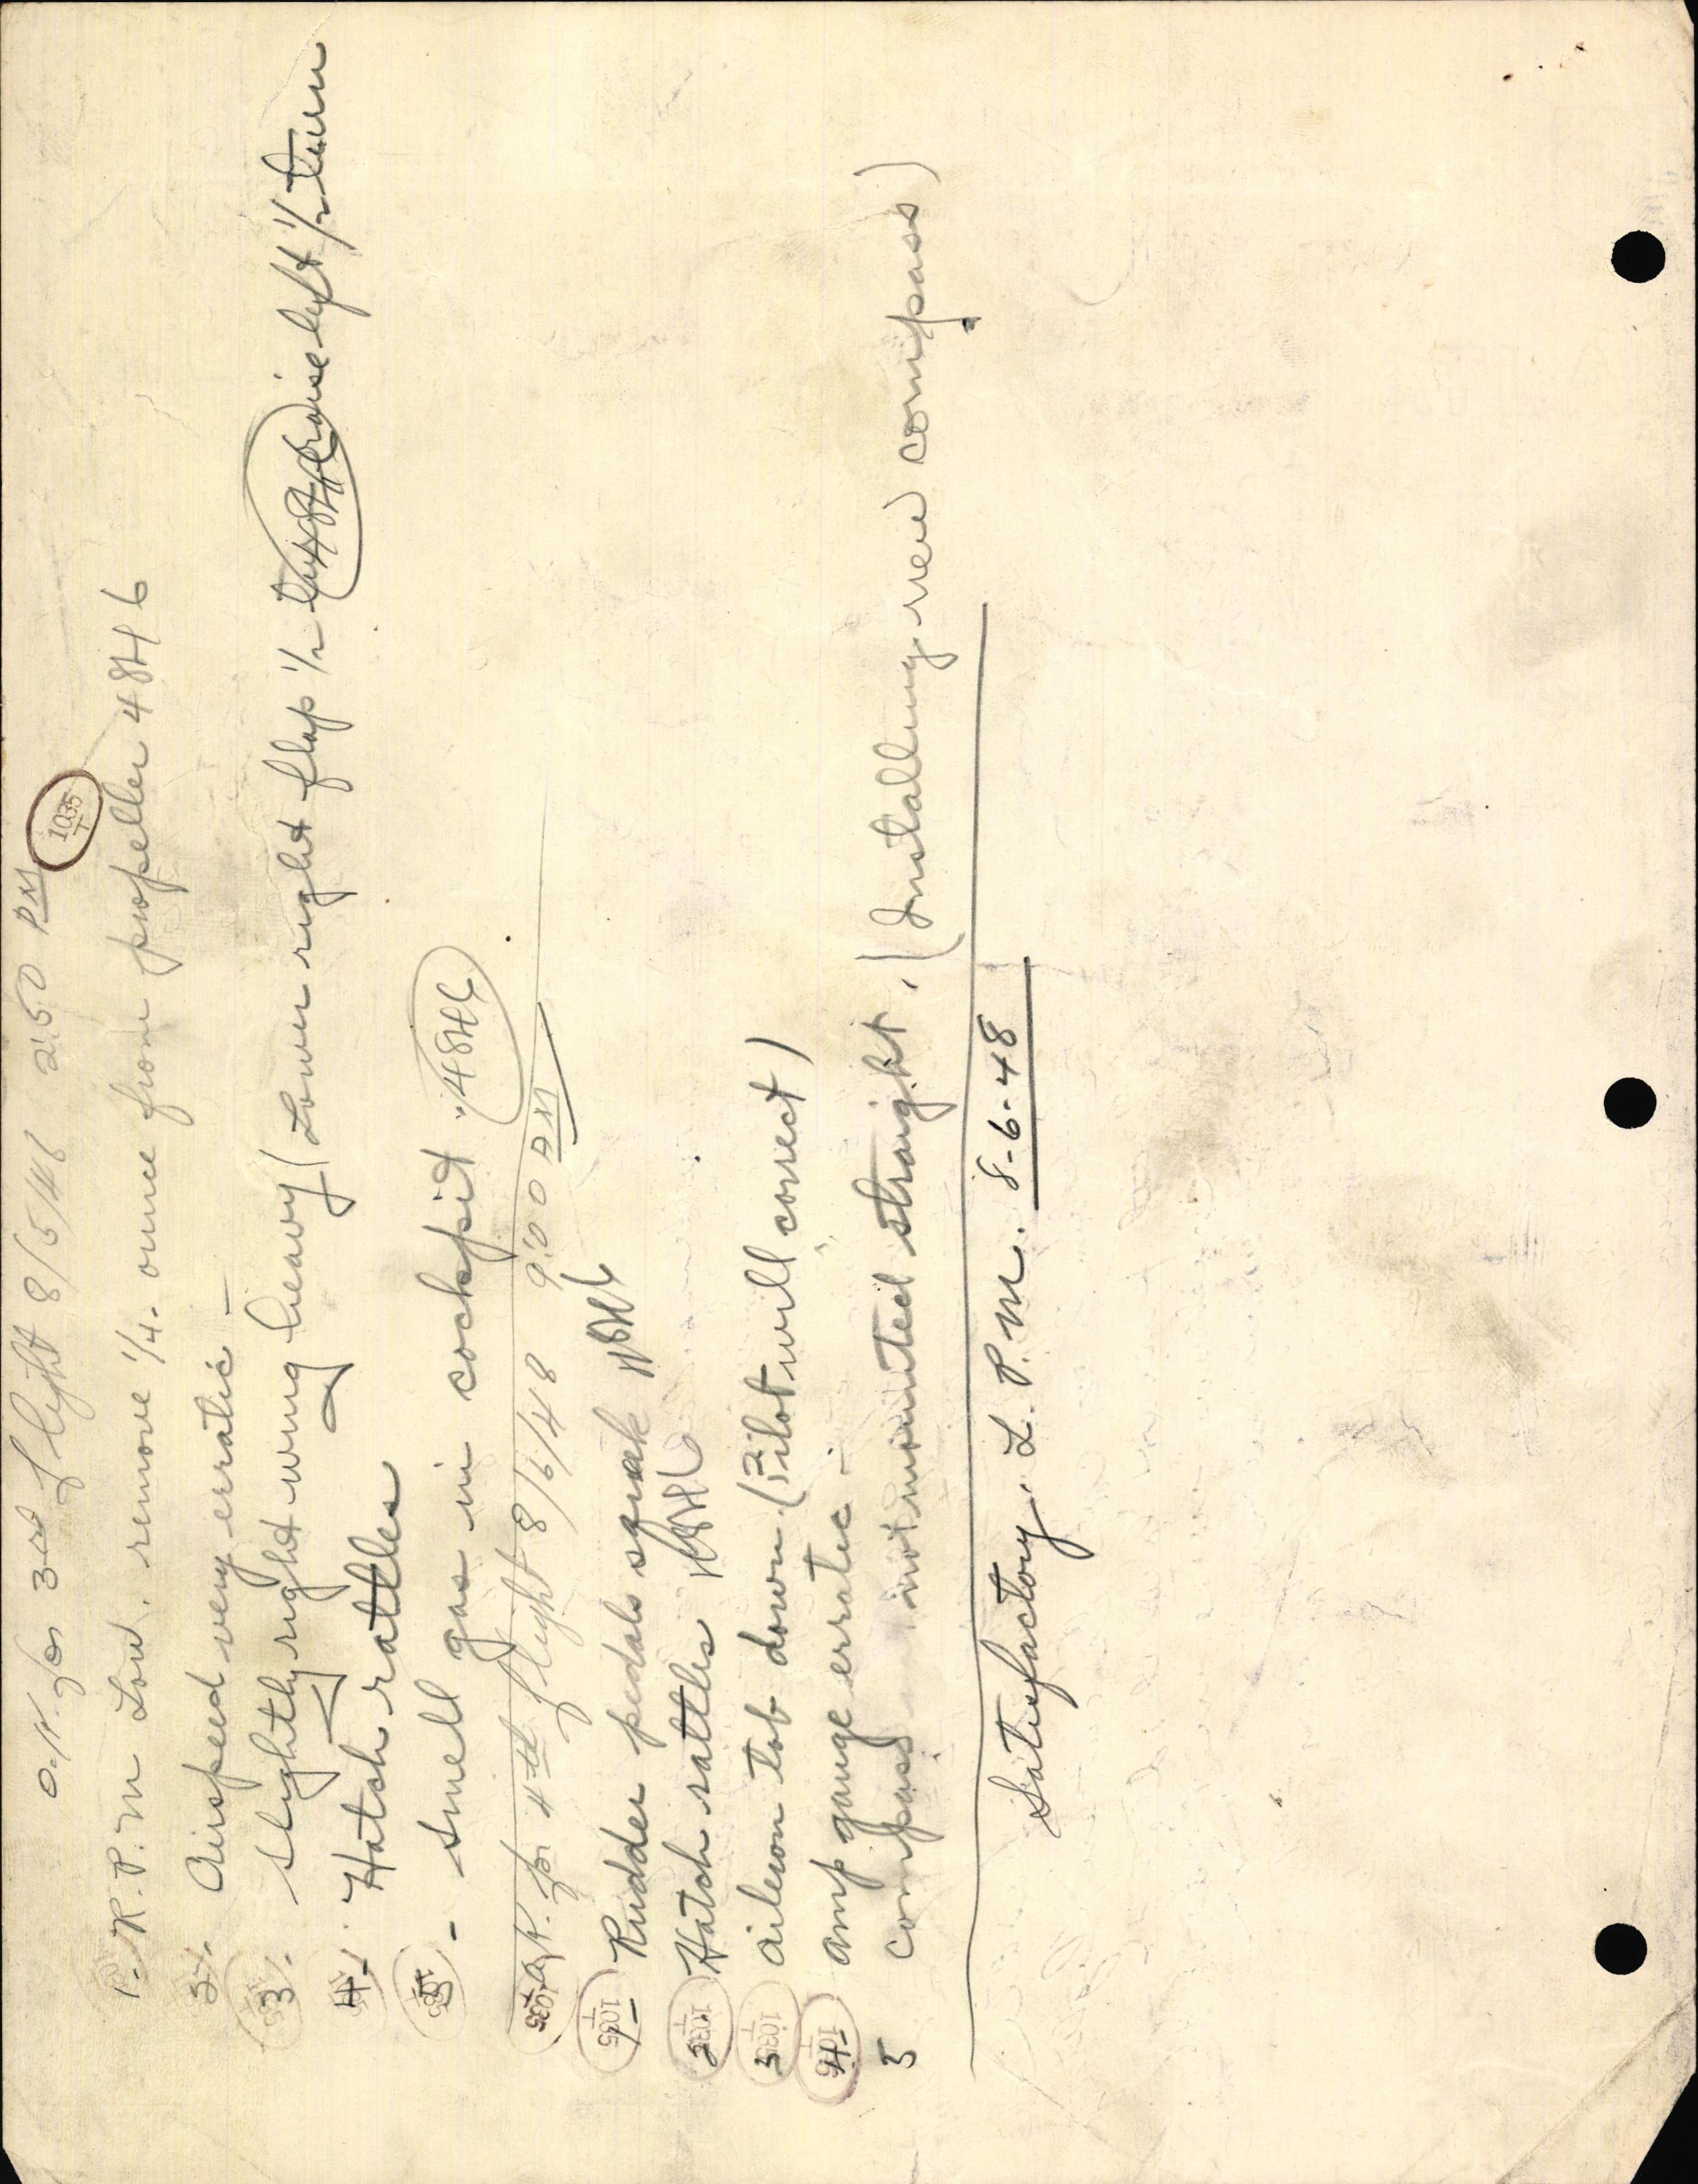 O.K. for 3rd flight 8/5/48 2:50 PM 1035 T
1. R.P.M Low. remove 1/4. ounce from propeller 48H6
2. Airspeed very erratic —
3. slightly right wing heavy (Lower right flap 1/2 48H6 raise left 1/2 turn
4. Hatch rattles
5 - smell gas in cockpit. 48H6
1035 T O.K. for 4th flight 8/6/48 9:00 AM
1035 T 1 - Rudder pedals squeak 48H6
1035 T 2 Hatch rattles 48H6
1035 T 3 aileron tab down. (Pilot will correct)
1035 T 4 - amp gauge erratic -
5 compass not mounted straight. (Installing new compass)
Satisfactory. L. P. M. 8-6-48